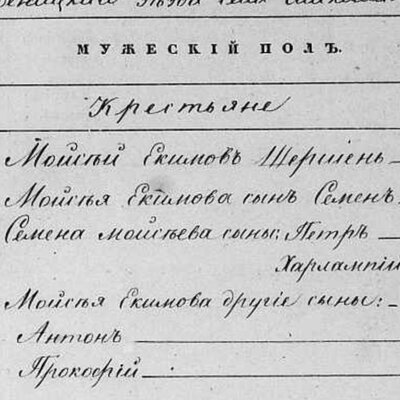 уѣзда села
МУЖЕСКІЙ ПОЛЪ.
Крестьяне
Мойсѣй Екимовъ Шершень
Мойсѣя Екимова сынъ Семенъ
Семена мойсѣева сыны: Петръ
Харлампій
Мойсѣя Екимова другіе сыны:
Антонъ
Прокофій